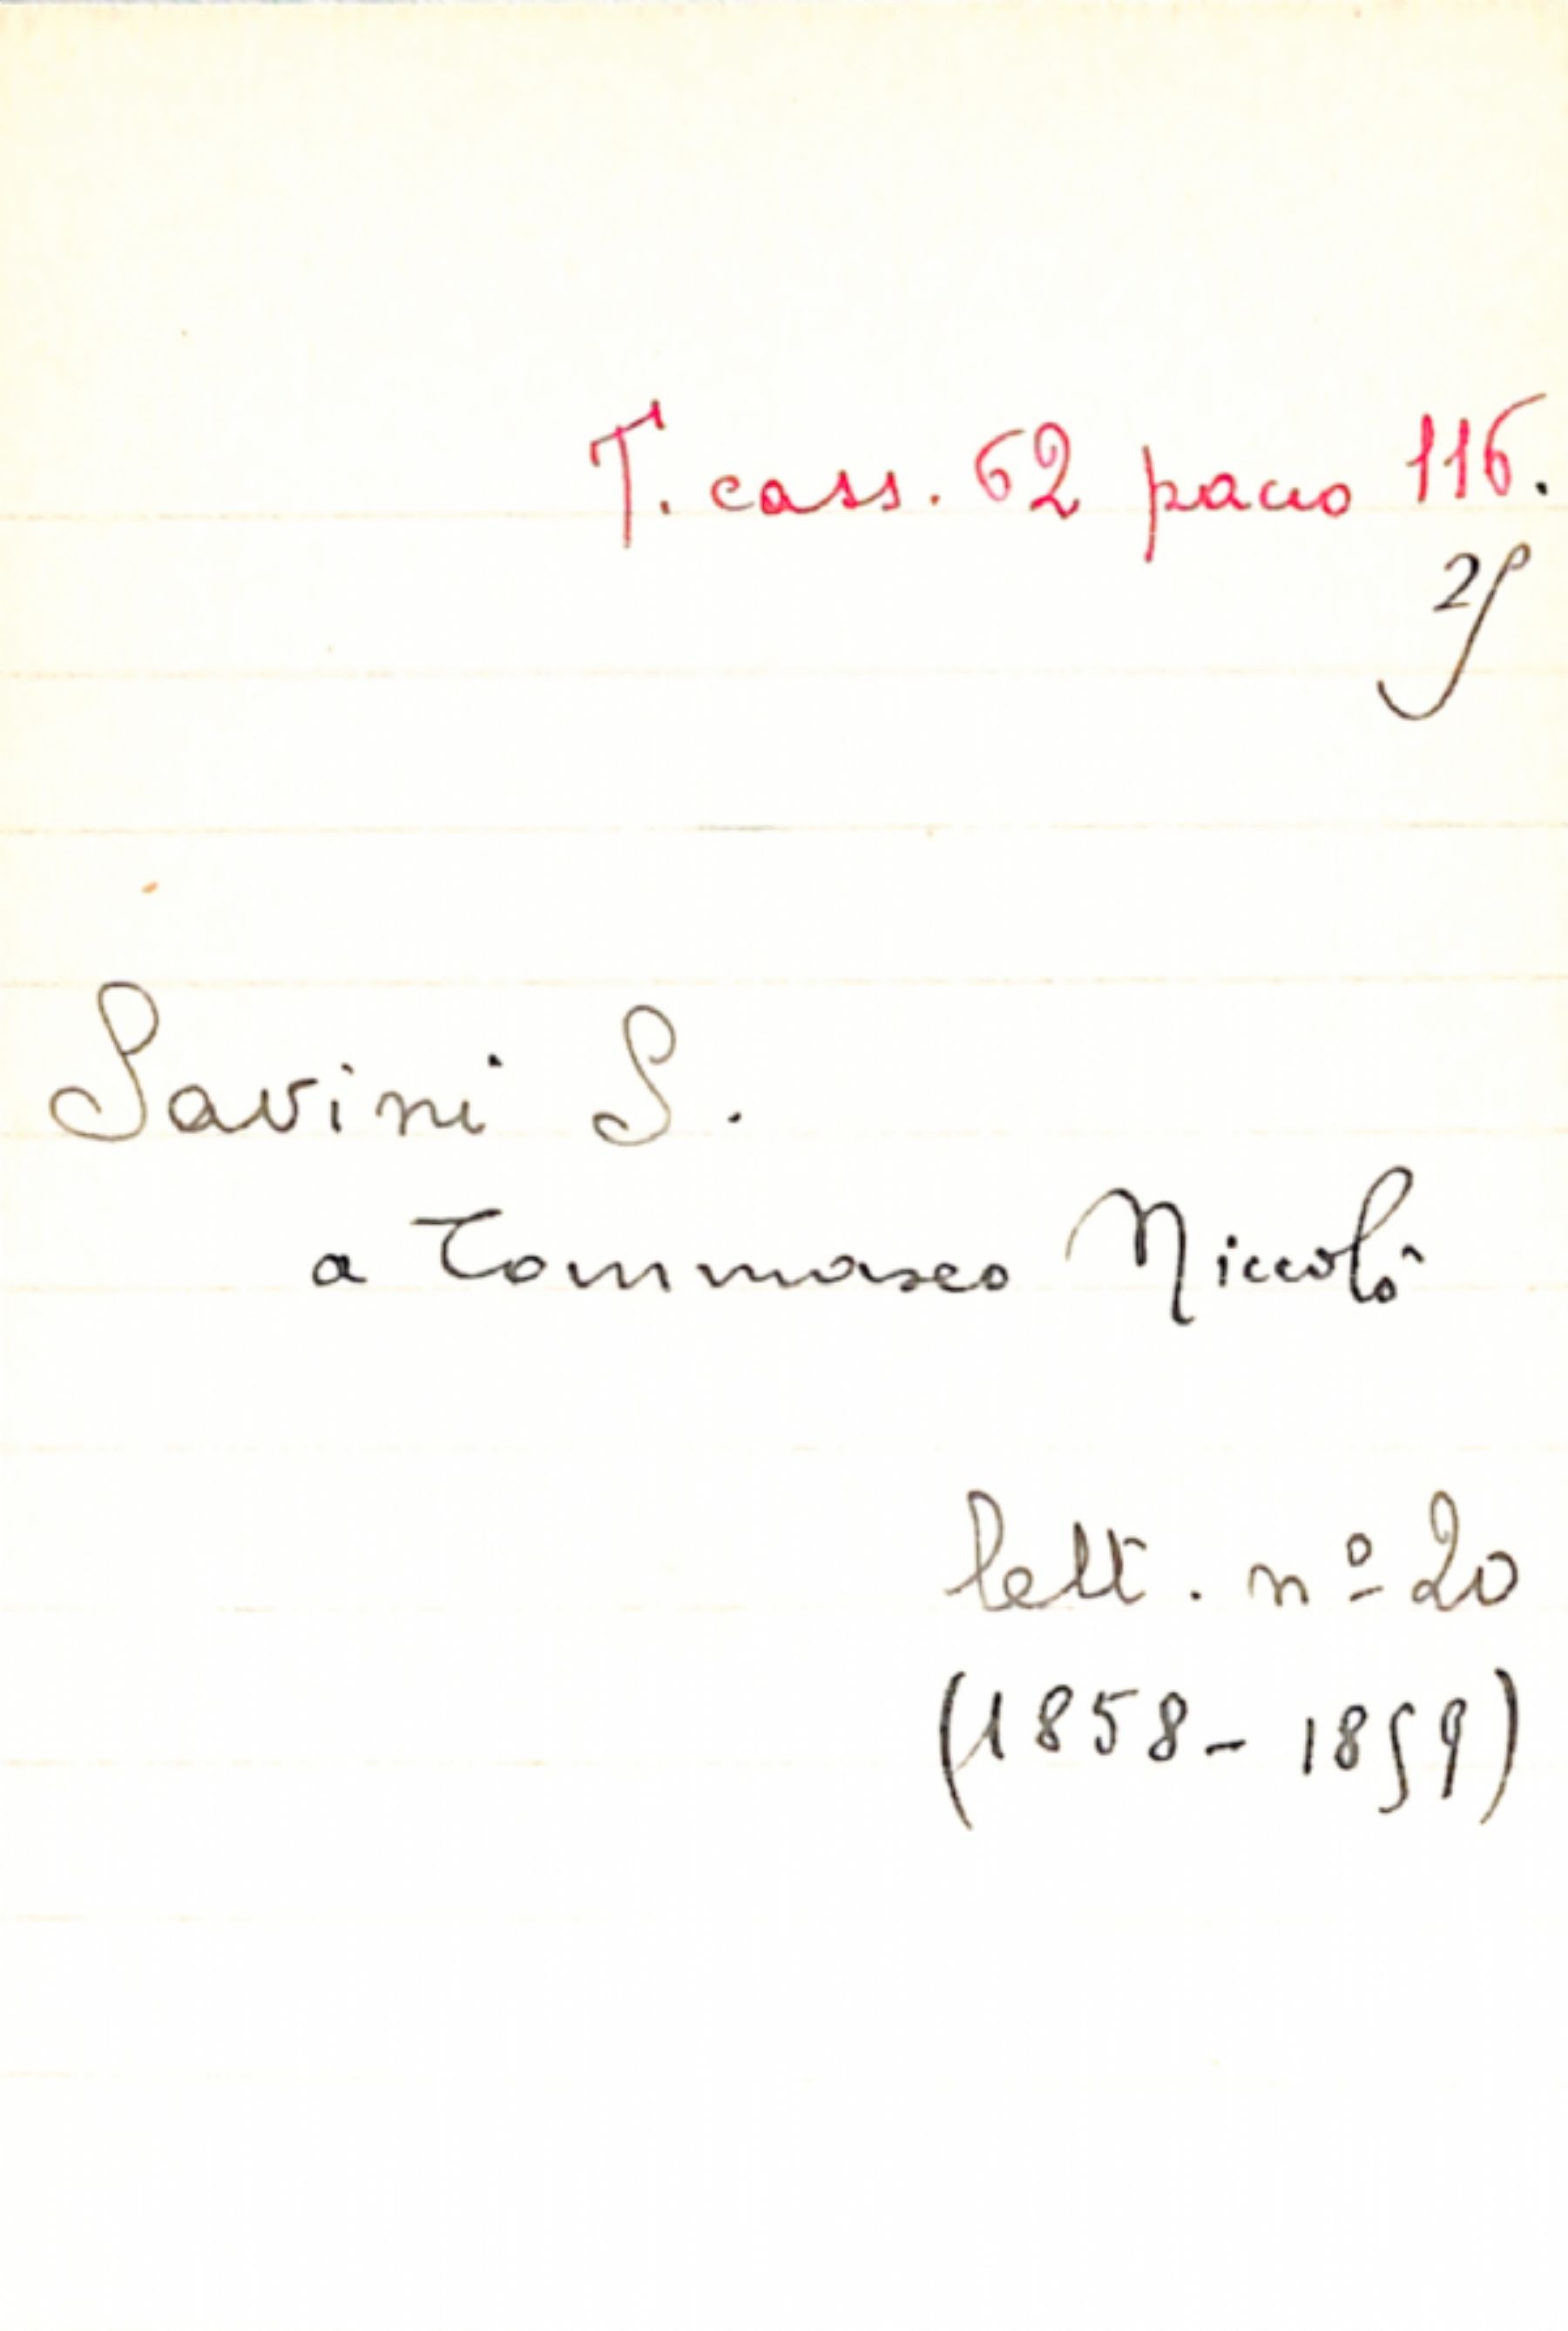 T. cass. 62 pacco 116.
2
Savini S.
a Tommaseo Niccolò
lett. nº 20
(1858 - 1859)